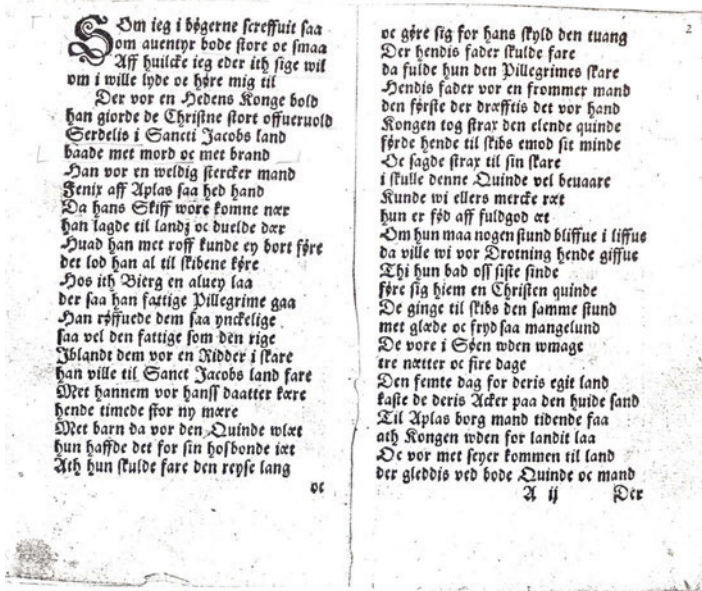 SOm ieg i bøgerne screffuit saa
som auentyr bode store oc smaa
Aff huilcke ieg eder ith sige wil
om i wille lyde oc høre mig til
Der vor en Hedens Konge bold
han giorde de Christne stort offueruold
Serdelis i Sancti Jacobs land
baade met mord oc met brand
Han vor en weldig stercker mand
Fenix aff Aplas saa hed hand
Da hans Skiff wore komne nær
han lagde til landz oc duelde dær
Huad han met roff kunde ey bort føre
det lod han al til skibene køre
Hos ith Bierg en aluey laa
der saa han fattige Pillegrime gaa
Han røffuede dem saa ynckelige
saa vel den fattige som den rige
Iblandt dem vor en Ridder i skare
han ville til Sanct Jacobs land fare
Met hannem vor hanss daatter kære
hende timede stor ny mære
Met barn da vor den Quinde wlæt
hun haffde det for sin hosbonde iæt
Ath hun skulde fare den reyse lang
oc
2
oc gøre sig for hans skyld den tuang
Der hendis fader skulde fare
da fulde hun den Pillegrimes skare
Hendis fader vor en frommer mand
den første der dræfftis det vor hand
Kongen tog strax den elende quinde
førde hende til skibs emod sit minde
Oc sagde strax til sin skare
i skulle denne Quinde vel beuaare
Kunde wi ellers mercke ræt
hun er fød aff fuldgod æt
Om hun maa nogen stund bliffue i liffue
da ville wi vor Drotning hende giffue
Thi hun bad oss siste sinde
føre sig hiem en Christen quinde
De ginge til skibs den samme stund
met glæde oc fryd saa mangelund
De vore i Søen vden vmage
tre nætter oc fire dage
Den femte dag for deris egit land
kaste de deris Acker paa den huide sand
Til Aplas borg mand tidende faa
ath Kongen vden for landit laa
Oc vor met seyer kommen til land
der gleddis ved bode Quinde oc mand
A ij Der